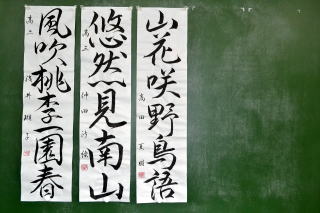 山花咲野鳥語
高田
悠然見南山
高三 仲田
風吹桃李一園春
高二